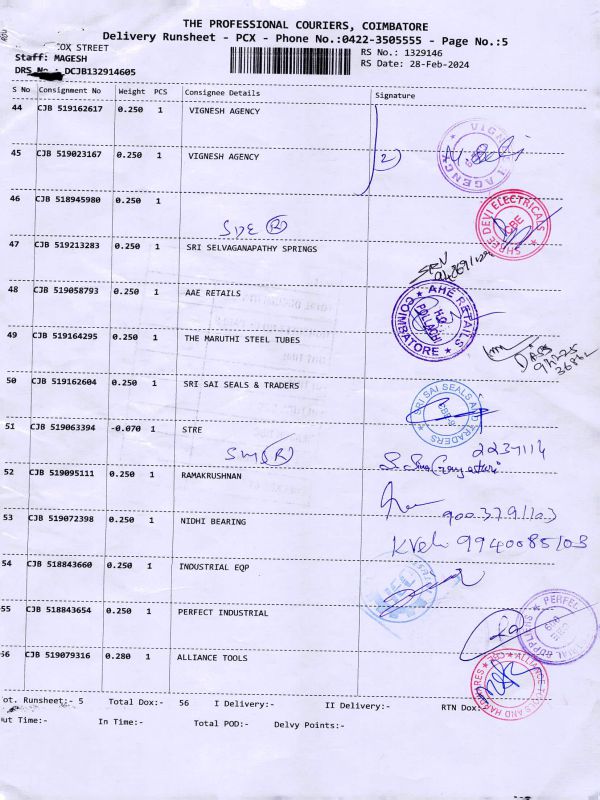 THE PROFESSIONAL COURIERS, COIMBATORE
Delivery Runsheet - PCX - Phone No.:0422-3505555 - Page No.:5
COX STREET
Staff: MAGESH
RS No.: 1329146
DRS No.: DCJB132914605
RS Date: 28-Feb-2024
S No Consignment No Weight PCS Consignee Details Signature
44 CJB 519162617 0.250 1 VIGNESH AGENCY
45 CJB 519023167 0.250 1 VIGNESH AGENCY
2)
VIGNESH AGENCY
46 CJB 518945980 0.250 1
SDE (R)
SHREE DEVI ELECTRICALS CBE
47 CJB 519213283 0.250 1 SRI SELVAGANAPATHY SPRINGS
48 CJB 519058793 0.250 1 AAE RETAILS
AHE RETAILS COIMBATORE H.O. POLLACHI
49 CJB 519164295 0.250 1 THE MARUTHI STEEL TUBES
50 CJB 519162604 0.250 1 SRI SAI SEALS & TRADERS
SRI SAI SEALS AND TRADERS
51 CJB 519063394 -0.070 1 STRE
52 CJB 519095111 0.250 1 RAMAKRUSHNAN
53 CJB 519072398 0.250 1 NIDHI BEARING
9940085103
54 CJB 518843660 0.250 1 INDUSTRIAL EQP
55 CJB 518843654 0.250 1 PERFECT INDUSTRIAL
56 CJB 519079316 0.280 1 ALLIANCE TOOLS
ALLIANCE TOOLS AND HARDWARES
ot. Runsheet:- 5 Total Dox:- 56 I Delivery:- II Delivery:- RTN Dox:-
ut Time:- In Time:- Total POD:- Delvy Points:-